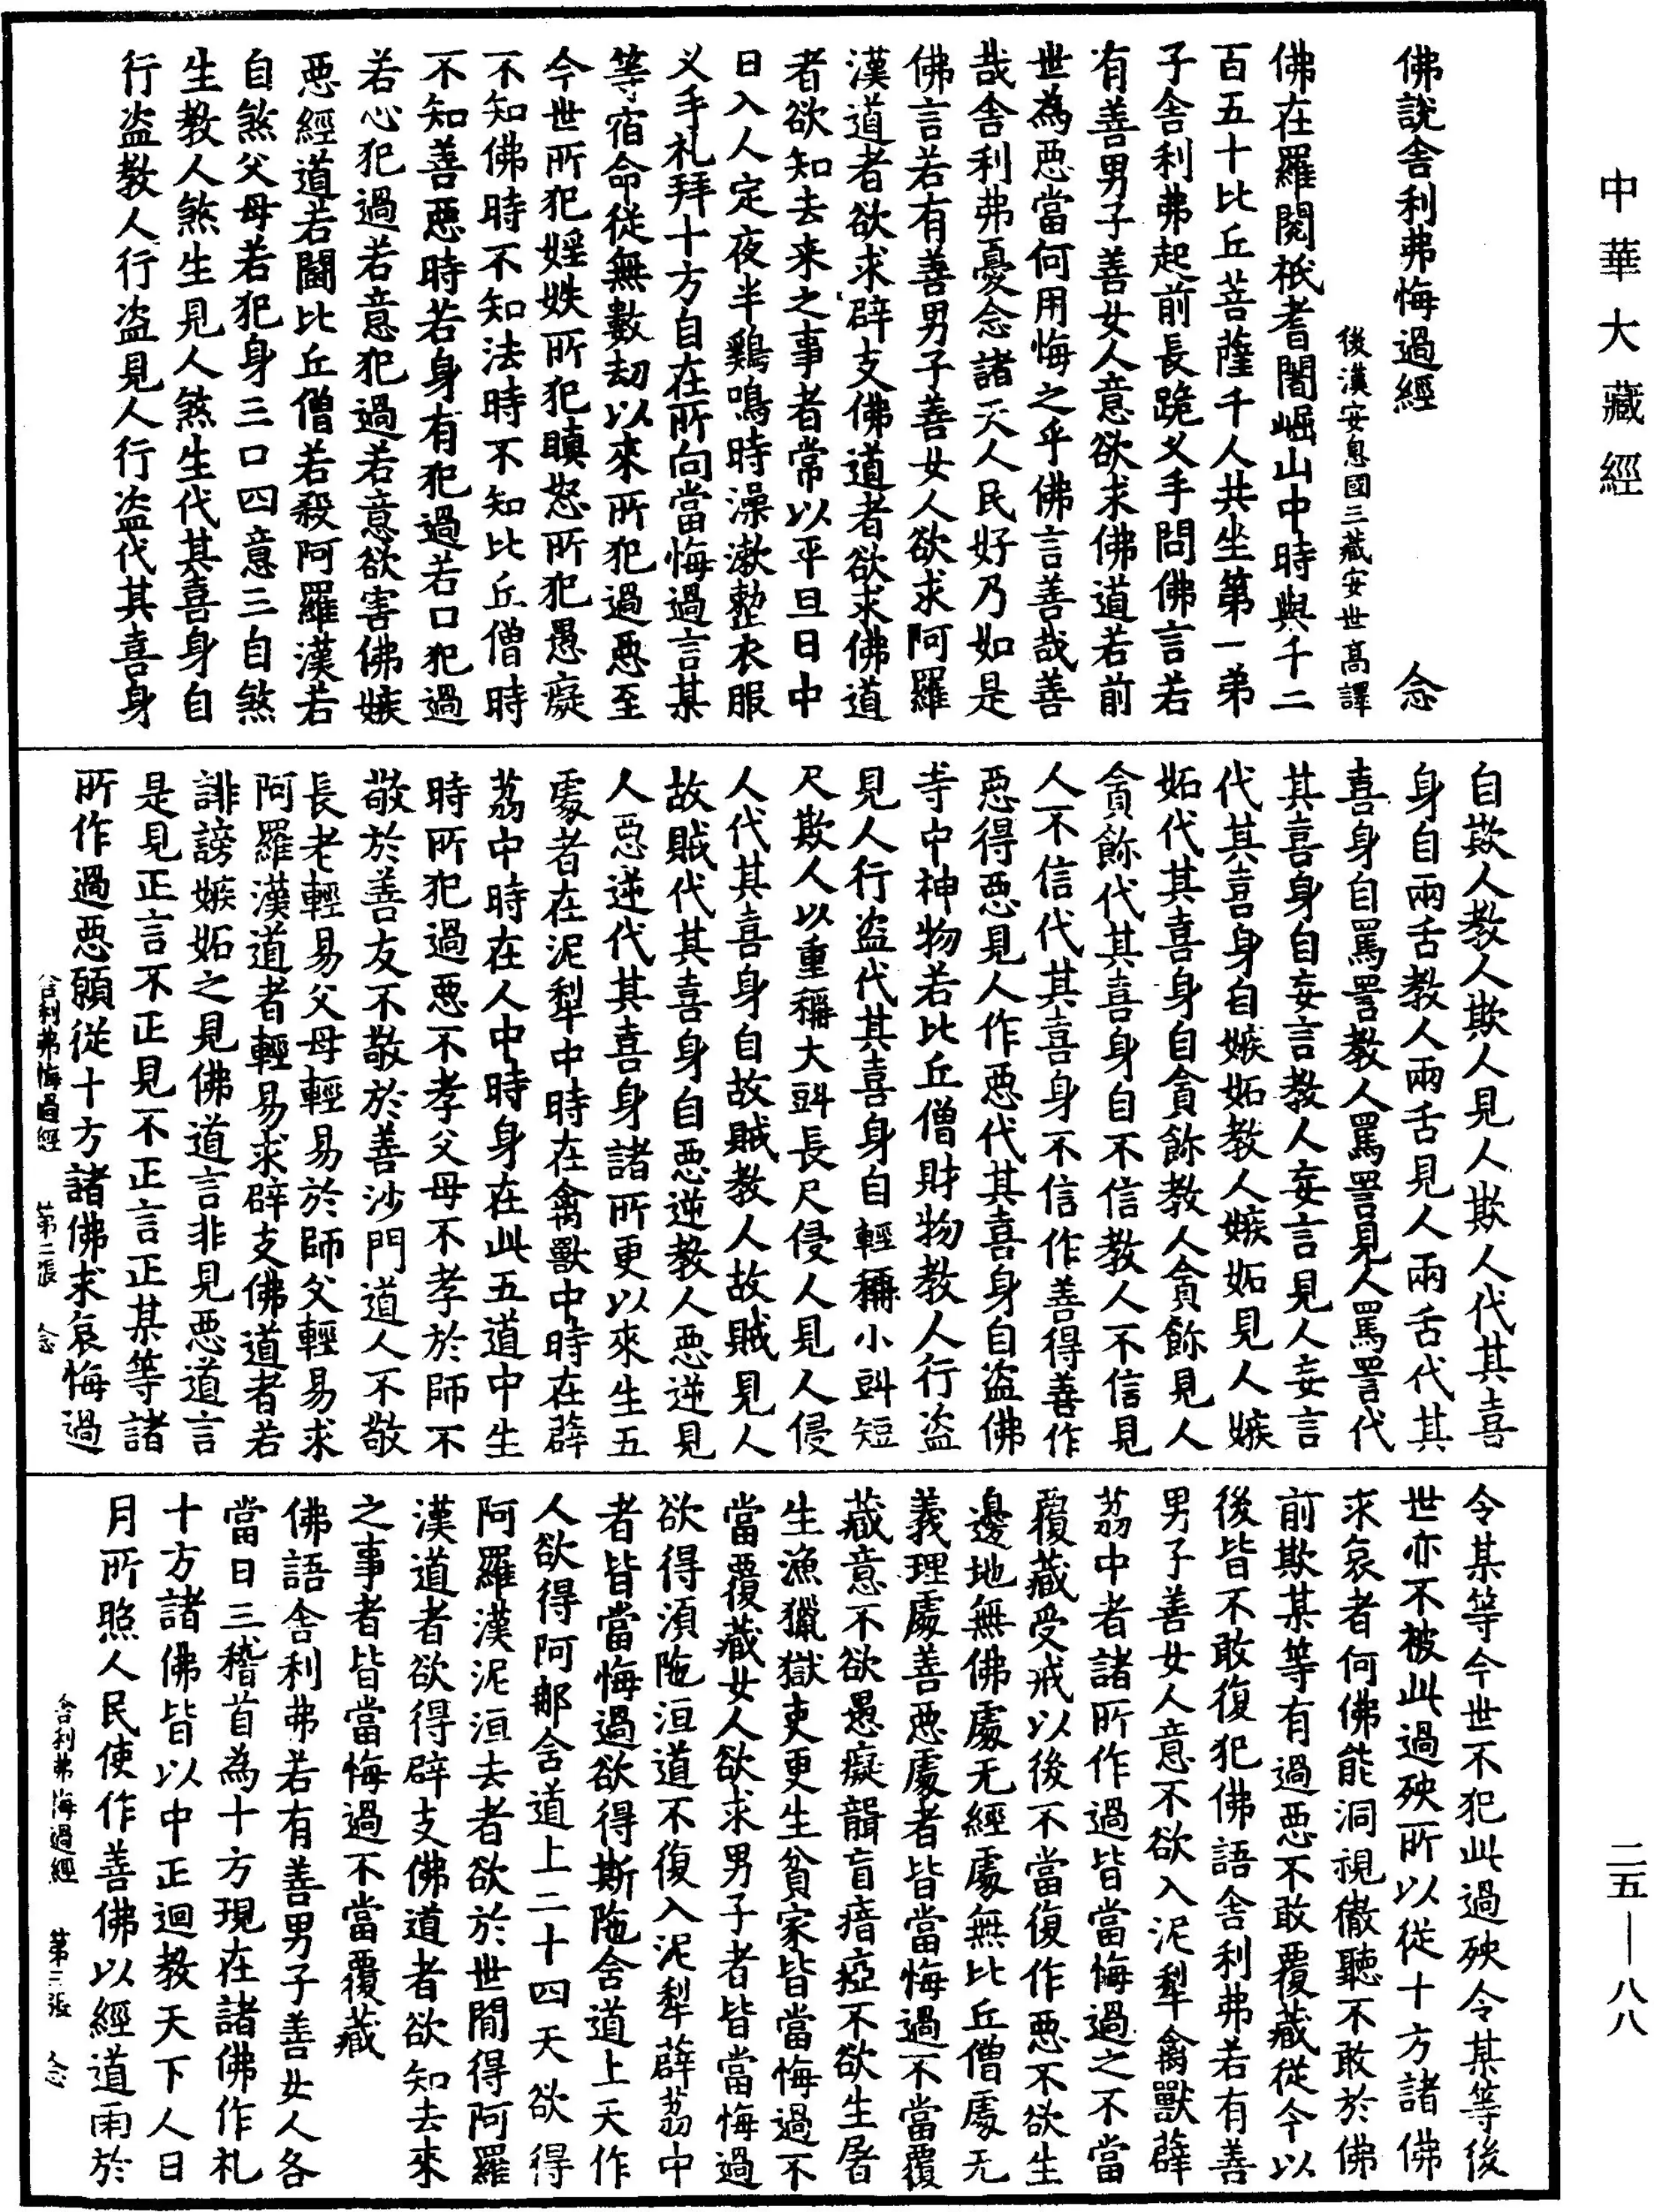 中華大藏經
佛說舍利弗悔過經 念
後漢安息國三藏安世高譯
佛在羅閱祇耆闍崛山中時與千二
百五十比丘菩薩千人共坐第一弟
子舍利弗起前長跪叉手問佛言若
有善男子善女人意欲求佛道若前
世為惡當何用悔之乎佛言善哉善
哉舍利弗憂念諸天人民好乃如是
佛言若有善男子善女人欲求阿羅
漢道者欲求辟支佛道者欲求佛道
者欲知去來之事者常以平旦日中
日入人定夜半鷄鳴時澡漱整衣服
叉手礼拜十方自在所向當悔過言某
等宿命從無數劫以來所犯過惡至
今世所犯婬妷所犯瞋怒所犯愚癡
不知佛時不知法時不知比丘僧時
不知善惡時若身有犯過若口犯過
若心犯過若意犯過若意欲害佛嫉
惡經道若鬪比丘僧若殺阿羅漢若
自煞父母若犯身三口四意三自煞
生教人煞生見人煞生代其喜身自
行盜教人行盜見人行盜代其喜身
自欺人教人欺人見人欺人代其喜
身自兩舌教人兩舌見人兩舌代其
喜身自罵詈教人罵詈見人罵詈代
其喜身自妄言教人妄言見人妄言
代其喜身自嫉妬教人嫉妬見人嫉
妬代其喜身自貪飻教人貪飻見人
貪飻代其喜身自不信教人不信見
人不信代其喜身不信作善得善作
惡得惡見人作惡代其喜身自盜佛
寺中神物若比丘僧財物教人行盜
見人行盜代其喜身自輕稱小㪷短
尺欺人以重稱大㪷長尺侵人見人侵
人代其喜身自故賊教人故賊見人
故賊代其喜身自惡逆教人惡逆見
人惡逆代其喜身諸所更以來生五
處者在泥犁中時在禽獸中時在薜
荔中時在人中時身在此五道中生
時所犯過惡不孝父母不孝於師不
敬於善友不敬於善沙門道人不敬
長老輕易父母輕易於師父輕易求
阿羅漢道者輕易求辟支佛道者若
誹謗嫉妬之見佛道言非見惡道言
是見正言不正見不正言正某等諸
所作過惡願從十方諸佛求哀悔過
舍利弗悔過經 第二張 念
令某等今世不犯此過殃令某等後
世亦不被此過殃所以從十方諸佛
求哀者何佛能洞視徹聽不敢於佛
前欺某等有過惡不敢覆藏從今以
後皆不敢復犯佛語舍利弗若有善
男子善女人意不欲入泥犁禽獸薜
荔中者諸所作過皆當悔過之不當
覆藏受戒以後不當復作惡不欲生
邊地無佛處无經處無比丘僧處无
義理處善惡處者皆當悔過不當覆
藏意不欲愚癡聾盲瘖瘂不欲生屠
生漁獵獄吏更生貧家皆當悔過不
當覆藏女人欲求男子者皆當悔過
欲得須陁洹道不復入泥犁薜荔中
者皆當悔過欲得斯陁含道上天作
人欲得阿那含道上二十四天欲得
阿羅漢泥洹去者欲於世間得阿羅
漢道者欲得辟支佛道者欲知去來
之事者皆當悔過不當覆藏
佛語舍利弗若有善男子善女人各
當日三稽首為十方現在諸佛作礼
十方諸佛皆以中正迴教天下人日
月所照人民使作善佛以經道雨於
舍利弗悔過經 第三張 念
二五—八八